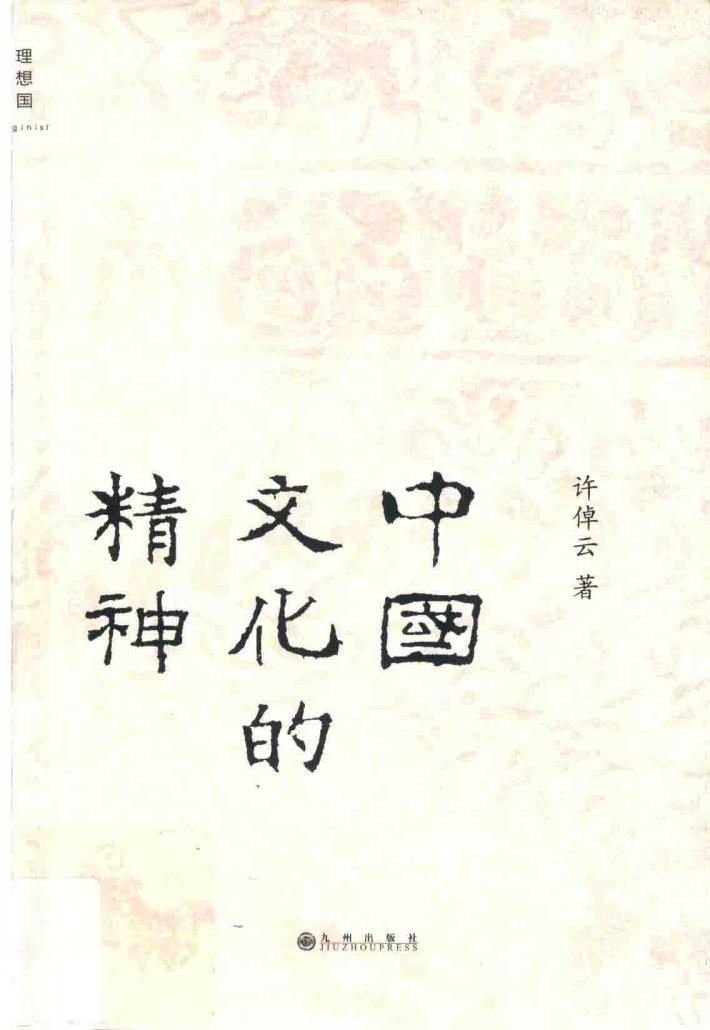 理想国
ginist
许倬云 著
中國
文化的
精神
九州出版社
JIUZHOUPRESS